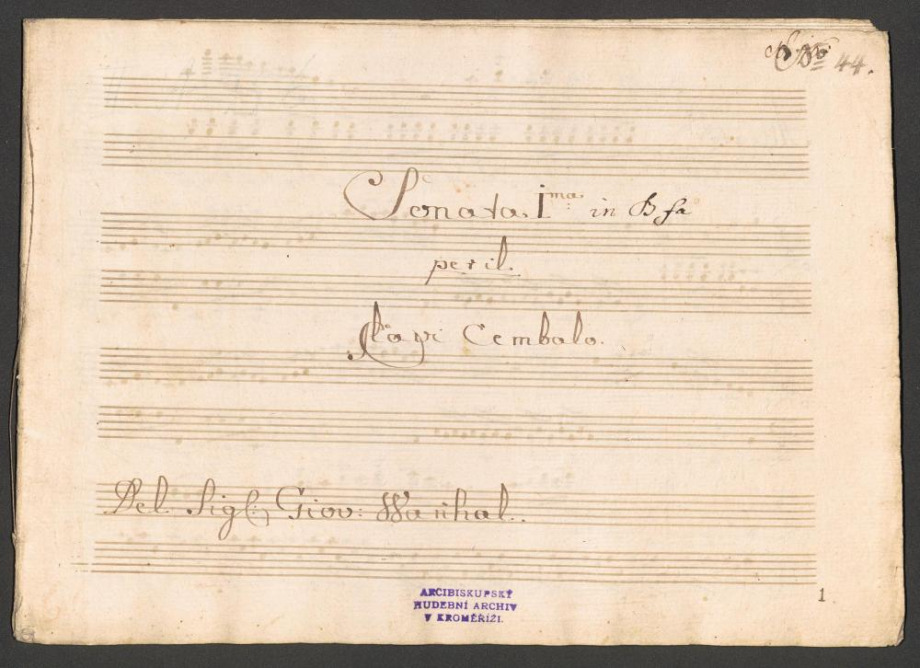 No 44.
Sonata I.ma in B fa
per il
Clavi Cembalo.
Del Sigl: Giov: Wanhal.
1
ARCIBISKUPSKÝ
HUDEBNÍ ARCHIV
V KROMĚŘÍŽI.